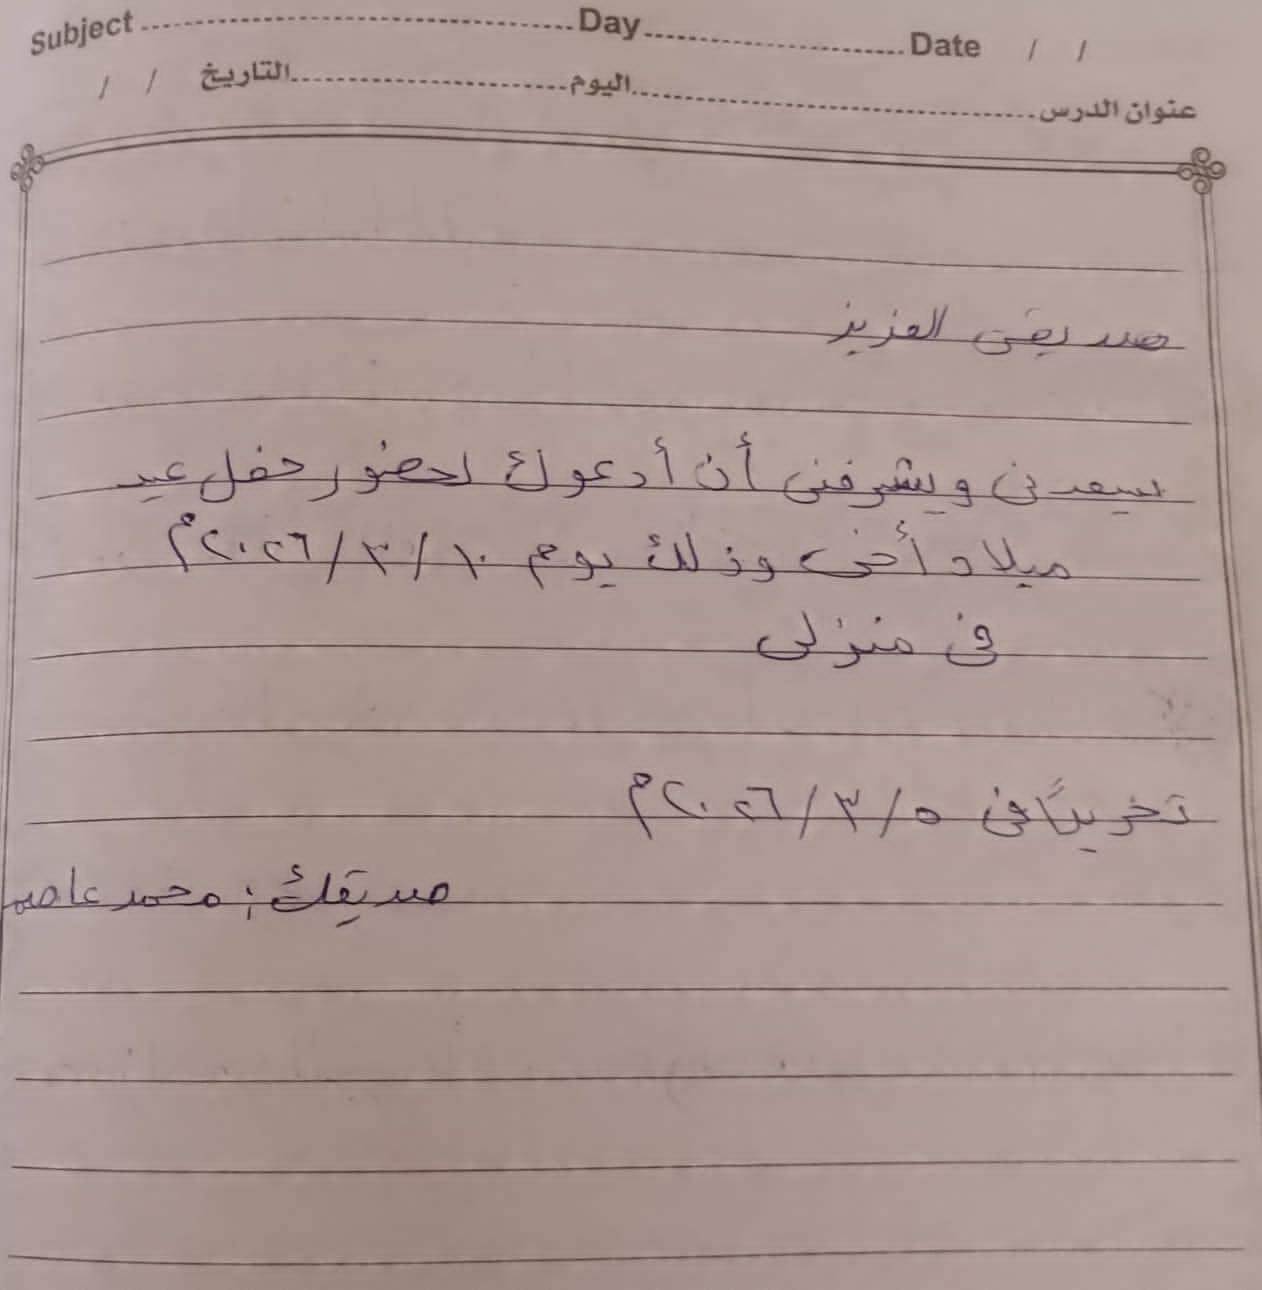 Subject ........ Day ........ Date / /
عنوان الدرس ........ اليوم ........ التاريخ / /
صديقى العزيز
يسعدنى ويشرفنى أن أدعوك لحضور حفل عيد
ميلاد أخى وذلك يوم ١٠/٣/٢٠٢٦م
فى منزلى
تحريرًا فى ٥/٣/٢٠٢٦م
صديقك: محمد عاصم